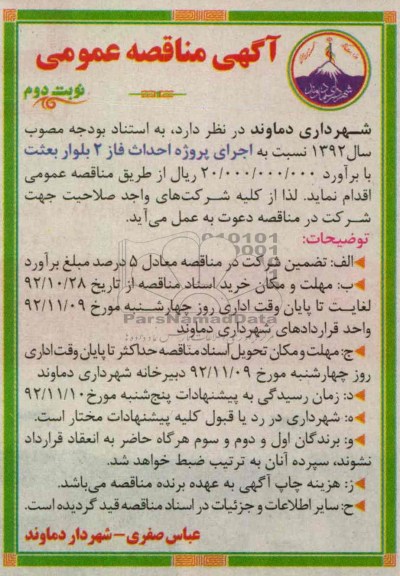 آگهی مناقصه عمومی
نوبت دوم
شهرداری دماوند
شهرداری دماوند در نظر دارد، به استناد بودجه مصوب
سال ۱۳۹۲ نسبت به اجرای پروژه احداث فاز ۲ بلوار بعثت
با برآورد ۲۰/۰۰۰/۰۰۰/۰۰۰ ریال از طریق مناقصه عمومی
اقدام نماید. لذا از کلیه شرکت‌های واجد صلاحیت جهت
شرکت در مناقصه دعوت به عمل می‌آید.
توضیحات:
الف: تضمین شرکت در مناقصه معادل ۵ درصد مبلغ برآورد
ب: مهلت و مکان خرید اسناد مناقصه از تاریخ ۹۲/۱۰/۲۸
لغایت تا پایان وقت اداری روز چهارشنبه مورخ ۹۲/۱۱/۰۹
واحد قراردادهای شهرداری دماوند
ج: مهلت و مکان تحویل اسناد مناقصه حداکثر تا پایان وقت اداری
روز چهارشنبه مورخ ۹۲/۱۱/۰۹ دبیرخانه شهرداری دماوند
د: زمان رسیدگی به پیشنهادات پنج‌شنبه مورخ ۹۲/۱۱/۱۰
ه: شهرداری در رد یا قبول کلیه پیشنهادات مختار است.
و: برندگان اول و دوم و سوم هرگاه حاضر به انعقاد قرارداد
نشوند، سپرده آنان به ترتیب ضبط خواهد شد.
ز: هزینه چاپ آگهی به عهده برنده مناقصه می‌باشد.
ح: سایر اطلاعات و جزئیات در اسناد مناقصه قید گردیده است.
عباس صفری – شهردار دماوند
ParsNamadData